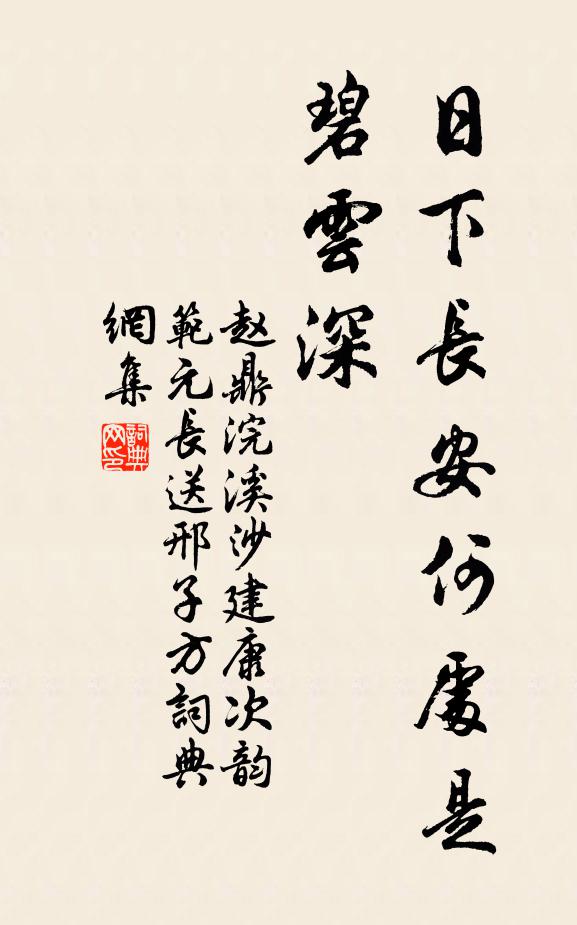 日下長安何處是
碧雲深
赵鼎浣溪沙建康次韵
範元長送邢子方詞典
網集
詞典網印